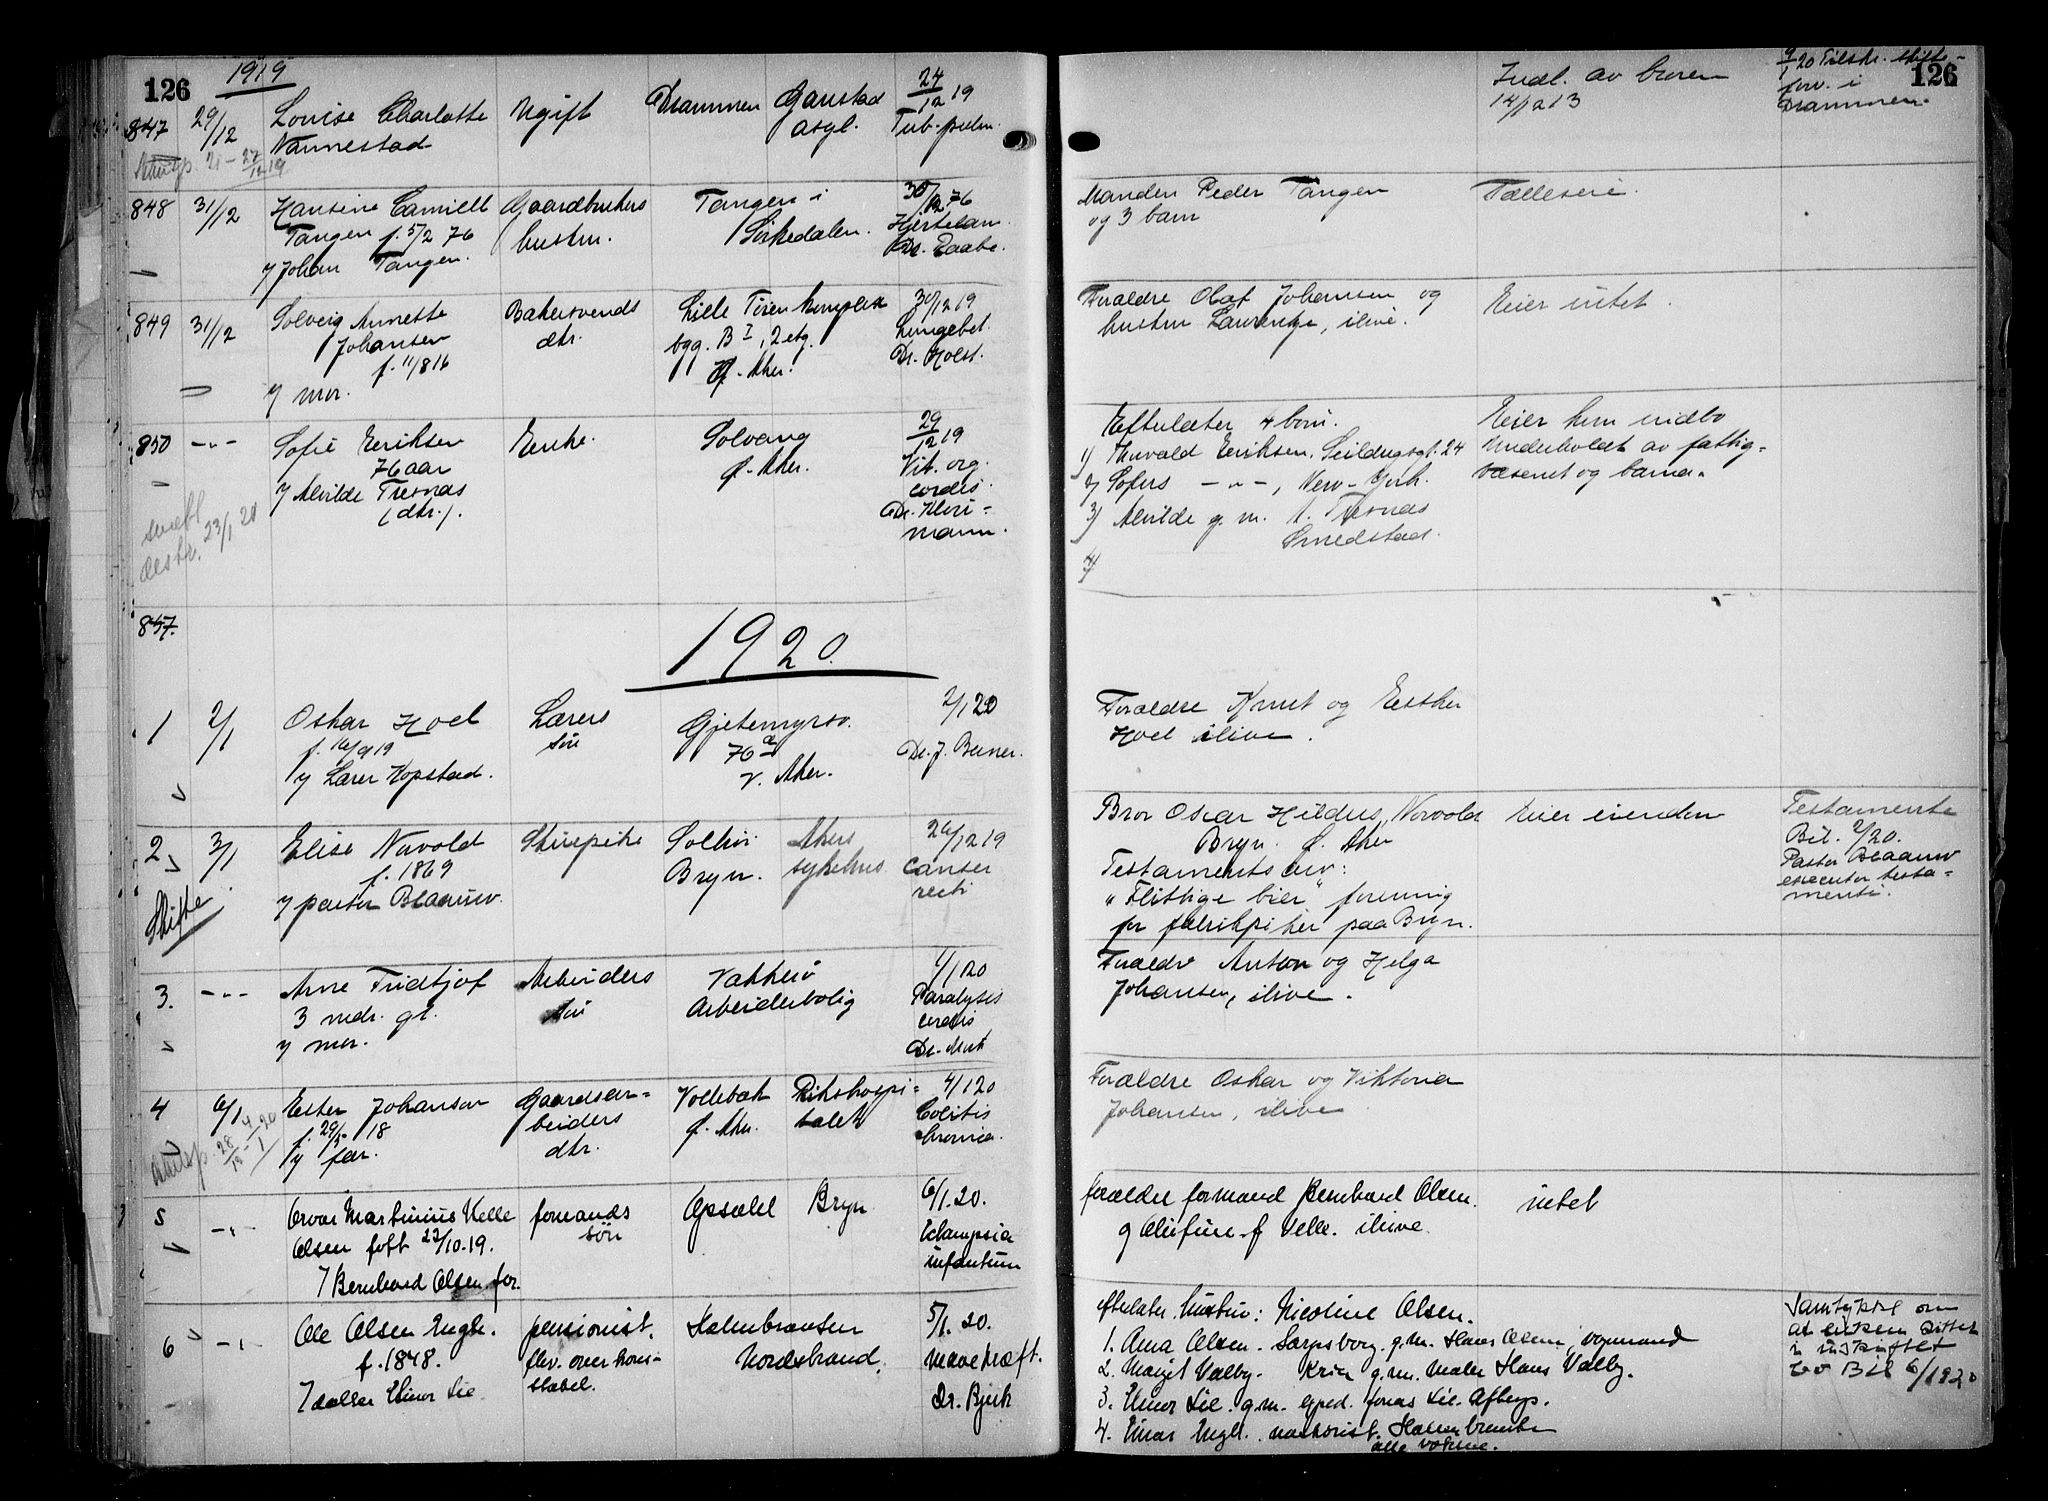 126
1919
847 29/12 Louise Charlotte Ugift Drammen Gaustad 24/12 19
Nannestad asyl. Tub. pulm.
21 - 27/12 19
848 31/12 Hansine Camilla Gaardbrukers Tangen i 30/12 76
Tangen f. 5/2 76 hustru. Sørkedalen. Hjertelam.
7 Johan Tangen. Dr. Raabe.
849 31/12 Solveig Annette Bakersvends Lille Tøien kompleks 30/12 19
Johansen dtr. bgg. B I, 2 etg. Lungebet.
f. 11/8 16 Ø. Aker. Dr. Holst.
7 mor.
850 -"- Sofie Eriksen Enke. Solvang 29/12 19
76 aar Ø. Aker. Vit. org.
7 Alvilde Tresnas cordis.
(dtr.).
23/1 20
mann.
857.
1920.
1 2/1 Oskar Hoel Lærers Gjetemyrsv. 2/1 20
f. 16/9 19 søn 76 a
7 Lærer Kopstad. V. Aker. Dr. J. Berner.
2 3/1 Elise Norvold Solhøi Akers 26/12 19
f. 1869 Bryn. sykehus. cancer
7 pastor Blaauw. recti
Skifte
3. -"- Arne Fridtjof Arbeiders Vækkerø 1/1 20
3 mdr. gl. søn Arbeiderbolig Paralysis
7 mor. cordis
Dr. Mork
4 6/1 Ester Johansen Gaardsar- Vollebæk Rikshospi- 4/1 20
f. 29/5 18 beiders Ø. Aker. talet Colitis
7 far. dtr. cronica.
28/12 - 4/1 20
5 -"- Orvar Martinius Velle formands Opsalel Bryn 6/1. 20.
Olsen født 22/10. 19. søn Eclampsia
7 Bernhard Olsen far. infantum
6 -"- Ole Olsen Engh. pensionist. Holmbraaten 5/1. 20.
f. 1848. fhv. overkon- Nordstrand. Mavekræft.
7 datter Einor Lie stabel. Dr. Bjerk
126
Indl. av broren 9/1 20 Tilskr. skifte-
14/12 13 forv. i
Drammen.
Manden Peder Tangen Fælleseie.
og 3 barn
Forældre Olaf Johansen og Eier intet.
hustru Laurentze, ilive.
Efterlater 4 børn. Eier kun indbo
1) Thorvald Eriksen. Seildugsgt. 24 Underholdt av fattig-
2) Sofus -"-, New-York. væsenet og barna.
3) Alvilde g. m. A. Tresnas
Smedstad.
4)
Forældre Knut og Esther
Hoel ilive.
Bror Oscar Hildus Norvold Eier eiendom Testamente
Bryn. Ø. Aker Bil. 2/20.
Testaments arv: Pastor Blaauw
"Flittige bier" forening executor testa-
for fabrikpiker paa Bryn. menti.
Forældre Anton og Helga
Johansen, ilive.
Forældre Oskar og Viktoria
Johansen, ilive
forældre formand Bernhard Olsen. intet
g Oliufine f Velle. ilive.
Efterlater hustru: Nicoline Olsen. Samtykke om
1. Anna Olsen. Sarpsborg. g.m. Hans Olsen, vognmand at enken sitter
2. Margit Valby. g.m. maler Hans Valby. i uskiftet
3. Einor Lie. g.m. exped. Jonas Lie. bo Bil 6/1920
4. Einar Engh. maskinist. Holmbraaten
alle voksne.